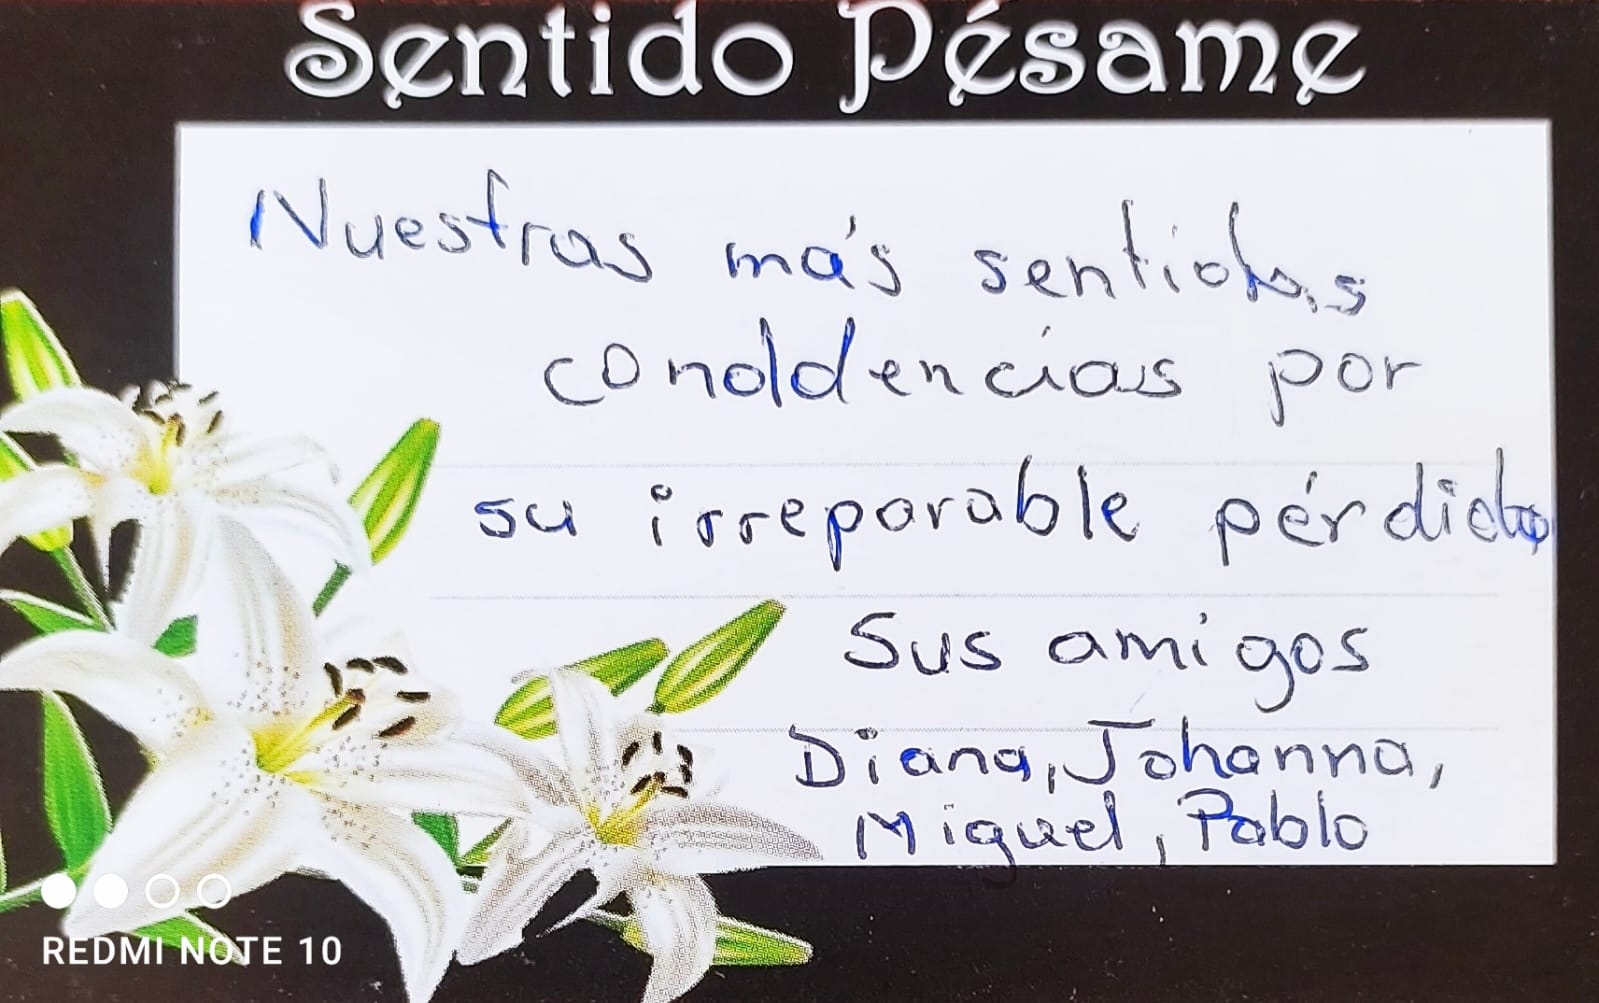 Sentido Pésame
Nuestras más sentidas
conoldencias por
su irreparable pérdida
Sus amigos
Diana, Johanna,
Miguel, Pablo
REDMI NOTE 10